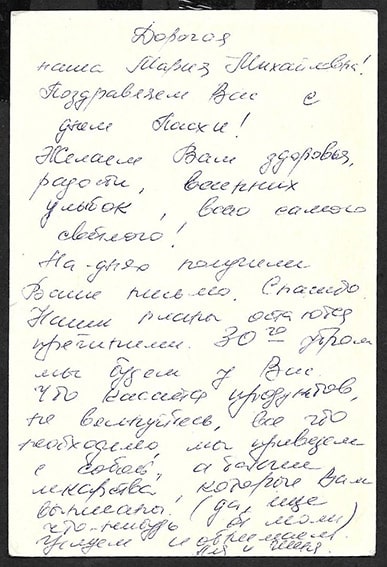 Дорогая
наша Мария Михайловна!
Поздравляем Вас с
днем Пасхи!
Желаем Вам здоровья,
радости, весенних
улыбок, всего самого
светлого!
На-днях получили
Ваше письмо. Спасибо.
Наши планы остаются
прежними. 30го утром
мы будем у Вас.
Что касается продуктов,
не волнуйтесь, все что
необходимо, мы привезем
с собой, а также
лекарства, которые Вам
выписаны. (да, еще
что-нибудь
Целуем и обнимаем.